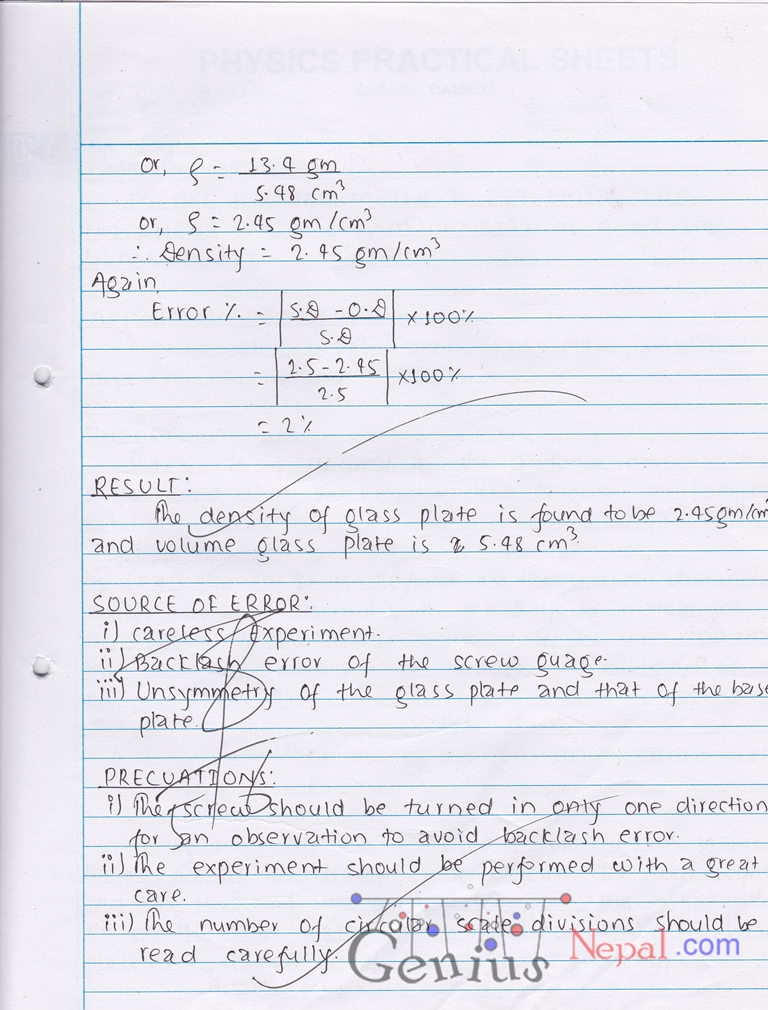 PHYSICS PRACTICAL SHEETS
CAMPUS
Or, ρ = 13.4 gm / 5.48 cm³
or, ρ = 2.45 gm/cm³
∴ Density = 2.45 gm/cm³
Again,
Error % = |S.D - O.D / S.D| ×100%
= |2.5 - 2.45 / 2.5| ×100%
= 2%
RESULT:
The density of glass plate is found to be 2.45 gm/cm³
and volume glass plate is 5.48 cm³.
SOURCE OF ERROR:
i) careless experiment.
ii) Backlash error of the screw guage.
iii) Unsymmetry of the glass plate and that of the base
plate.
PRECUATIONS:
i) The screw should be turned in only one direction
for an observation to avoid backlash error.
ii) The experiment should be performed with a great
care.
iii) The number of circular scale divisions should be
read carefully.
Genius Nepal.com